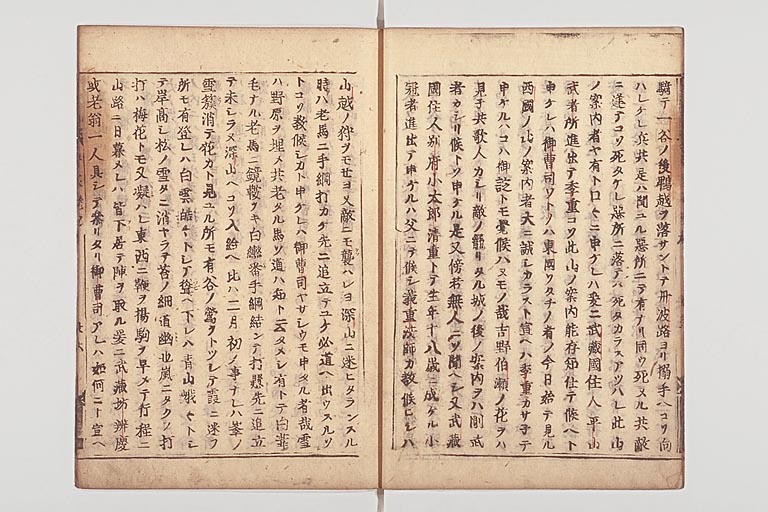 騎テ一谷ノ後鵯越ヲ落サントテ丹波路ヨリ搦手ヘコソ向
ハレケレ兵共是ハ聞ユル惡所ニテ有ナリ同ウ死ヌル共敵
ニ逢テコソ死タケレ惡所ニ落テハ死タカラスアツハレ此山
ノ案内者ヤ有トロ々ニ申ケレハ爰ニ武藏國住人平山
武者所進出テ季重コソ此山ノ案内能存知仕テ候ヘト
申ケレハ御曹司ワトノハ東國ソタチノ者ノ今日始テ見ル
西國ノ山ノ案内者大ニ誠シカラスト宣ヘハ季重カサ子テ
申ケルハコハ御諚トモ覺候ハヌモノ哉吉野泊瀬ノ花ヲハ
見子共歌人カシリ敵ノ籠リタル城ノ後ノ案内ヲハ剛武
者カシリ候トソ申ケル是又傍若無人ニソ聞ヘシ又武藏
國住人別府小太郎清重トテ生年十八歳ニ成ケル小
冠者進出テ申ケルハ父ニテ候シ義重法師カ教候ヒシハ
山越ノ狩ヲモセヨ又敵ニモ襲ハレヨ深山ニ迷ヒタランスル
時ハ老馬ニ手綱打カケ先ニ追立テユケ必道ヘ出ウスルソ
トコソ教候シカト申ケレハ御曹司ヤサシウモ申タル者哉雪
ハ野原ヲ埋メ共老タル馬ソ道ハ知ト云タメシ有トテ白葦
毛ナル老馬ニ鏡鞍ヲキ白轡番手綱結ンテ打懸先ニ追立
テ未シラヌ深山ヘコソ入給ヘ比ハ二月初ノ事ナレハ峯ノ
雪簇消テ花カト見ユル所モ有谷ノ鶯ヲトツレテ霞ニ迷フ
所モ有登レハ白雲皓々トシテ聳ヘ下レハ青山峨々トシ
テ岸高シ松ノ雪タニ消ヤラテ苔ノ細道幽也嵐ニタクフ打
打ハ梅花トモ又疑ハレ東西ニ鞭ヲ揚駒ヲ早メテ行程ニ
山路ニ日暮ヌレハ皆下居テ陣ヲ取ル爰ニ武藏坊辨慶
或老翁一人具シテ參リタリ御曹司アレハ如何ニト宣ヘ